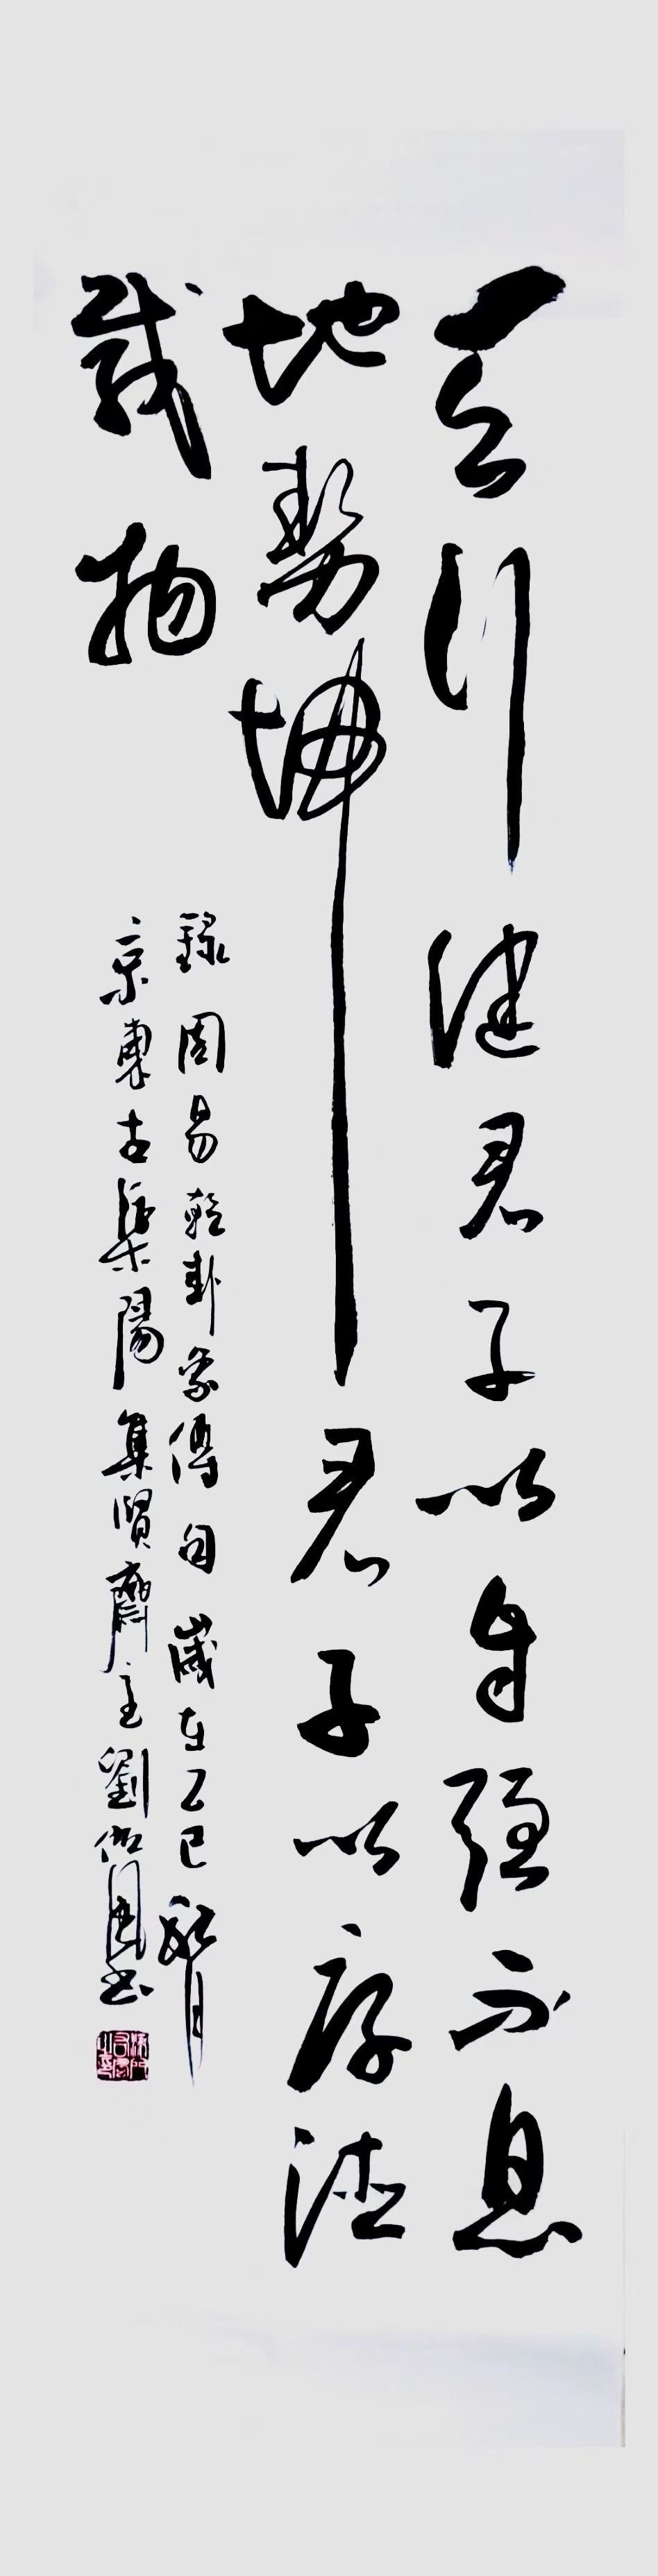 天行健君子以自強不息
地勢坤君子以厚德
載物
錄周易乾卦象傳句歲在乙巳月
京東古渠陽集賢齋主劉書